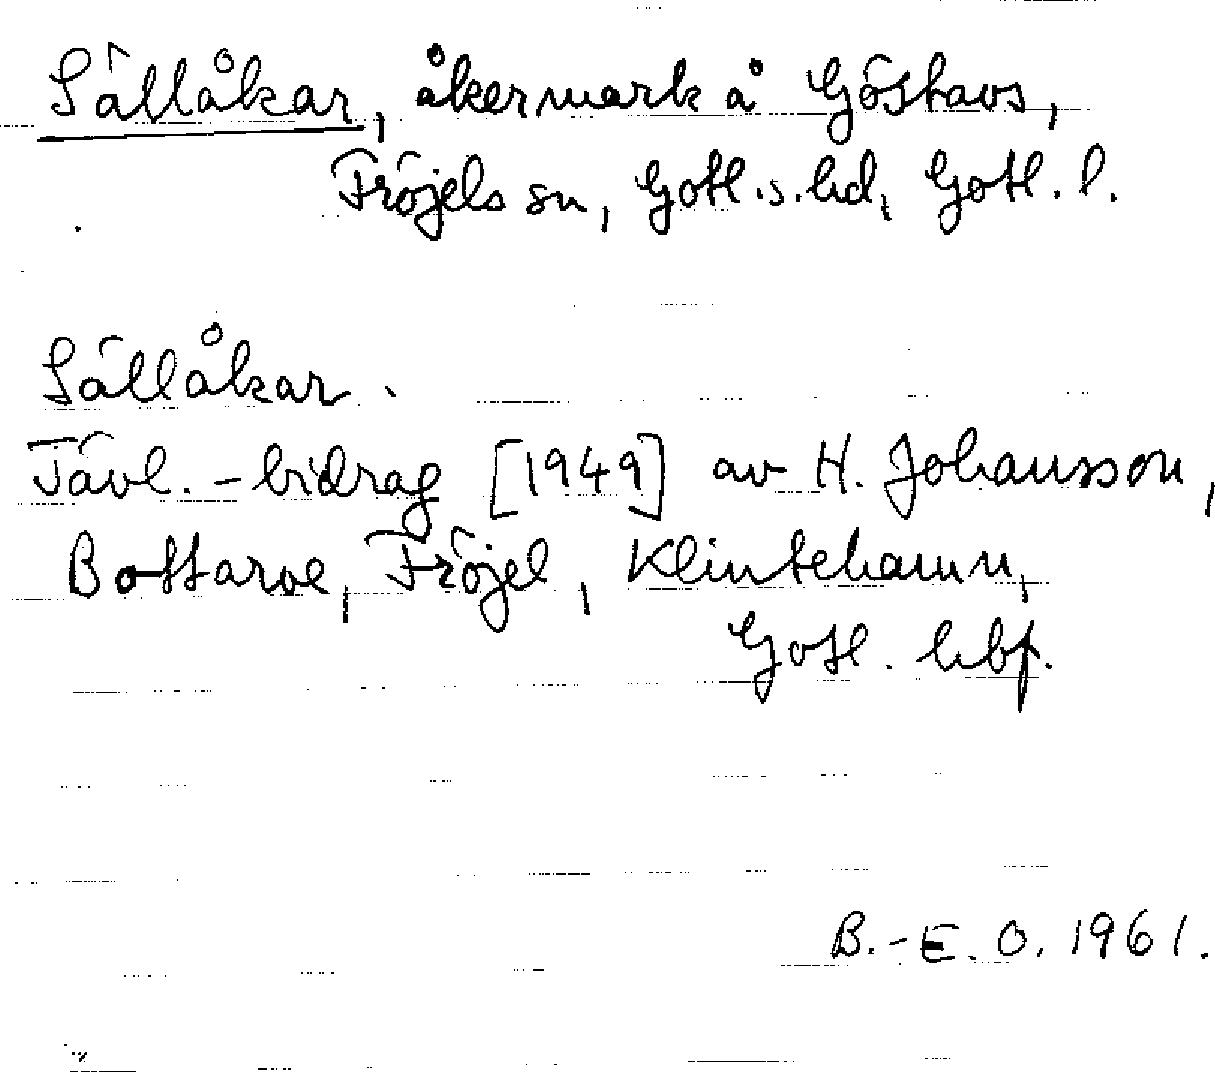 Sällåkar, åkermark å Göstavs,
Fröjels sn, Gotl.s.hd, Gotl. l.
Sällåkar.
Tävl.-bidrag [1949] av H. Johansson,
Bottarve, Fröjel, Klintehamn,
Gotl. hbf.
B.-E. O. 1961.